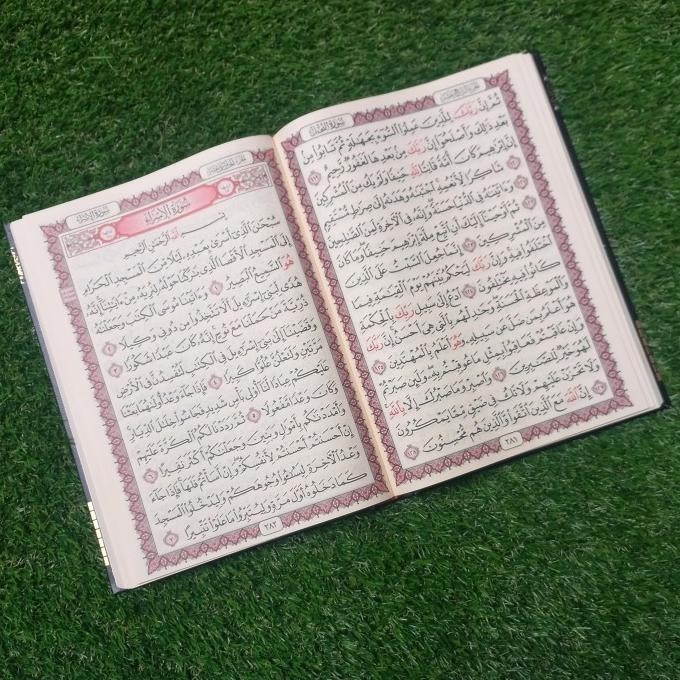 سُورَةُ النَّحْلِ
الجُزْءُ الرَّابِعَ عَشَرَ
ثُمَّ إِنَّ رَبَّكَ لِلَّذِينَ عَمِلُوا۟ ٱلسُّوٓءَ بِجَهَـٰلَةٍ ثُمَّ تَابُوا۟ مِنۢ
بَعْدِ ذَٰلِكَ وَأَصْلَحُوٓا۟ إِنَّ رَبَّكَ مِنۢ بَعْدِهَا لَغَفُورٌ رَّحِيمٌ ١١٩
إِنَّ إِبْرَٰهِيمَ كَانَ أُمَّةً قَانِتًا لِّلَّهِ حَنِيفًا وَلَمْ يَكُ مِنَ ٱلْمُشْرِكِينَ ١٢٠
شَاكِرًا لِّأَنْعُمِهِ ٱجْتَبَىٰهُ وَهَدَىٰهُ إِلَىٰ صِرَٰطٍ مُّسْتَقِيمٍ ١٢١
وَءَاتَيْنَـٰهُ فِى ٱلدُّنْيَا حَسَنَةً وَإِنَّهُۥ فِى ٱلْـَٔاخِرَةِ لَمِنَ ٱلصَّـٰلِحِينَ ١٢٢
ثُمَّ أَوْحَيْنَآ إِلَيْكَ أَنِ ٱتَّبِعْ مِلَّةَ إِبْرَٰهِيمَ حَنِيفًا وَمَا كَانَ
مِنَ ٱلْمُشْرِكِينَ ١٢٣ إِنَّمَا جُعِلَ ٱلسَّبْتُ عَلَى ٱلَّذِينَ
ٱخْتَلَفُوا۟ فِيهِ وَإِنَّ رَبَّكَ لَيَحْكُمُ بَيْنَهُمْ يَوْمَ ٱلْقِيَـٰمَةِ فِيمَا
كَانُوا۟ فِيهِ يَخْتَلِفُونَ ١٢٤ ٱدْعُ إِلَىٰ سَبِيلِ رَبِّكَ بِٱلْحِكْمَةِ
وَٱلْمَوْعِظَةِ ٱلْحَسَنَةِ وَجَـٰدِلْهُم بِٱلَّتِى هِىَ أَحْسَنُ إِنَّ رَبَّكَ
هُوَ أَعْلَمُ بِمَن ضَلَّ عَن سَبِيلِهِۦ وَهُوَ أَعْلَمُ بِٱلْمُهْتَدِينَ ١٢٥
وَإِنْ عَاقَبْتُمْ فَعَاقِبُوا۟ بِمِثْلِ مَا عُوقِبْتُم بِهِۦ وَلَئِن صَبَرْتُمْ
لَهُوَ خَيْرٌ لِّلصَّـٰبِرِينَ ١٢٦ وَٱصْبِرْ وَمَا صَبْرُكَ إِلَّا بِٱللَّهِ
وَلَا تَحْزَنْ عَلَيْهِمْ وَلَا تَكُ فِى ضَيْقٍ مِّمَّا يَمْكُرُونَ ١٢٧
إِنَّ ٱللَّهَ مَعَ ٱلَّذِينَ ٱتَّقَوا۟ وَّٱلَّذِينَ هُم مُّحْسِنُونَ ١٢٨
٢٨١
الجُزْءُ الخَامِسَ عَشَرَ
سُورَةُ الإِسْرَاءِ
سُورَةُ الإِسْرَاءِ
بِسْمِ ٱللَّهِ ٱلرَّحْمَـٰنِ ٱلرَّحِيمِ
سُبْحَـٰنَ ٱلَّذِىٓ أَسْرَىٰ بِعَبْدِهِۦ لَيْلًا مِّنَ ٱلْمَسْجِدِ ٱلْحَرَامِ
إِلَى ٱلْمَسْجِدِ ٱلْأَقْصَا ٱلَّذِى بَـٰرَكْنَا حَوْلَهُۥ لِنُرِيَهُۥ مِنْ ءَايَـٰتِنَآ إِنَّهُۥ
هُوَ ٱلسَّمِيعُ ٱلْبَصِيرُ ١ وَءَاتَيْنَا مُوسَى ٱلْكِتَـٰبَ وَجَعَلْنَـٰهُ
هُدًى لِّبَنِىٓ إِسْرَٰٓءِيلَ أَلَّا تَتَّخِذُوا۟ مِن دُونِى وَكِيلًا ٢
ذُرِّيَّةَ مَنْ حَمَلْنَا مَعَ نُوحٍ إِنَّهُۥ كَانَ عَبْدًا شَكُورًا ٣
وَقَضَيْنَآ إِلَىٰ بَنِىٓ إِسْرَٰٓءِيلَ فِى ٱلْكِتَـٰبِ لَتُفْسِدُنَّ فِى ٱلْأَرْضِ
مَرَّتَيْنِ وَلَتَعْلُنَّ عُلُوًّا كَبِيرًا ٤ فَإِذَا جَآءَ وَعْدُ أُولَىٰهُمَا بَعَثْنَا
عَلَيْكُمْ عِبَادًا لَّنَآ أُو۟لِى بَأْسٍ شَدِيدٍ فَجَاسُوا۟ خِلَـٰلَ ٱلدِّيَارِ
وَكَانَ وَعْدًا مَّفْعُولًا ٥ ثُمَّ رَدَدْنَا لَكُمُ ٱلْكَرَّةَ عَلَيْهِمْ
وَأَمْدَدْنَـٰكُم بِأَمْوَٰلٍ وَبَنِينَ وَجَعَلْنَـٰكُمْ أَكْثَرَ نَفِيرًا ٦
إِنْ أَحْسَنتُمْ أَحْسَنتُمْ لِأَنفُسِكُمْ وَإِنْ أَسَأْتُمْ فَلَهَا فَإِذَا جَآءَ
وَعْدُ ٱلْـَٔاخِرَةِ لِيَسُـۥٓـُٔوا۟ وُجُوهَكُمْ وَلِيَدْخُلُوا۟ ٱلْمَسْجِدَ
كَمَا دَخَلُوهُ أَوَّلَ مَرَّةٍ وَلِيُتَبِّرُوا۟ مَا عَلَوْا۟ تَتْبِيرًا ٧
٢٨٢